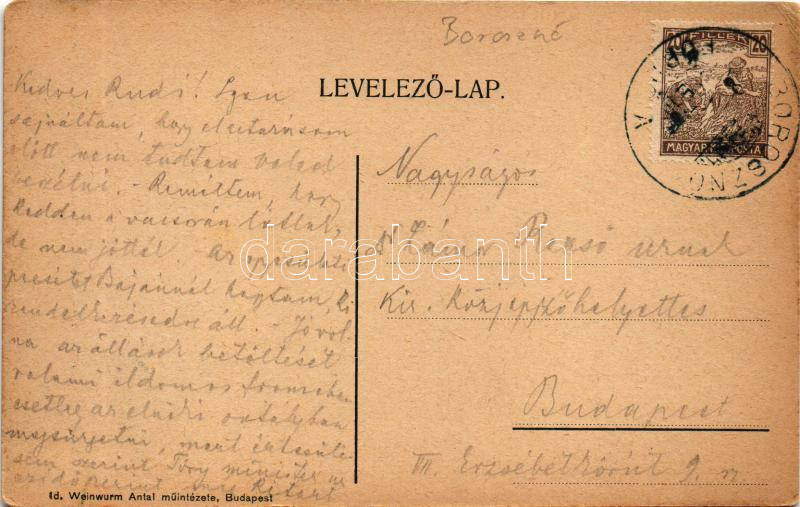 Boroszné
LEVELEZŐ-LAP.
20 FILLÉR 20
MAGYAR KIR. POSTA
BOROSZNÓ
Kedves Rudi! Igen
sajnáltam, hogy elutazásom
előtt nem tudtam veled
beszélni. - Reméltem, hogy
Kedden a vacsorán látlak,
de nem jöttél. - Az
Bajánnal hagytam, ki
rendelkezésedre áll. - Jó vol-
na az állások betöltését
valami ildomos formában
esetleg az elnöki osztályban
megsürgetni, mert értesülé-
sem szerint Töry miniszter
Nagyságos
Rezső urnak
Kir. Közjegyzőhelyettes
Budapest
VII. Erzsébetkörút 9.
darabanth
Id. Weinwurm Antal műintézete, Budapest